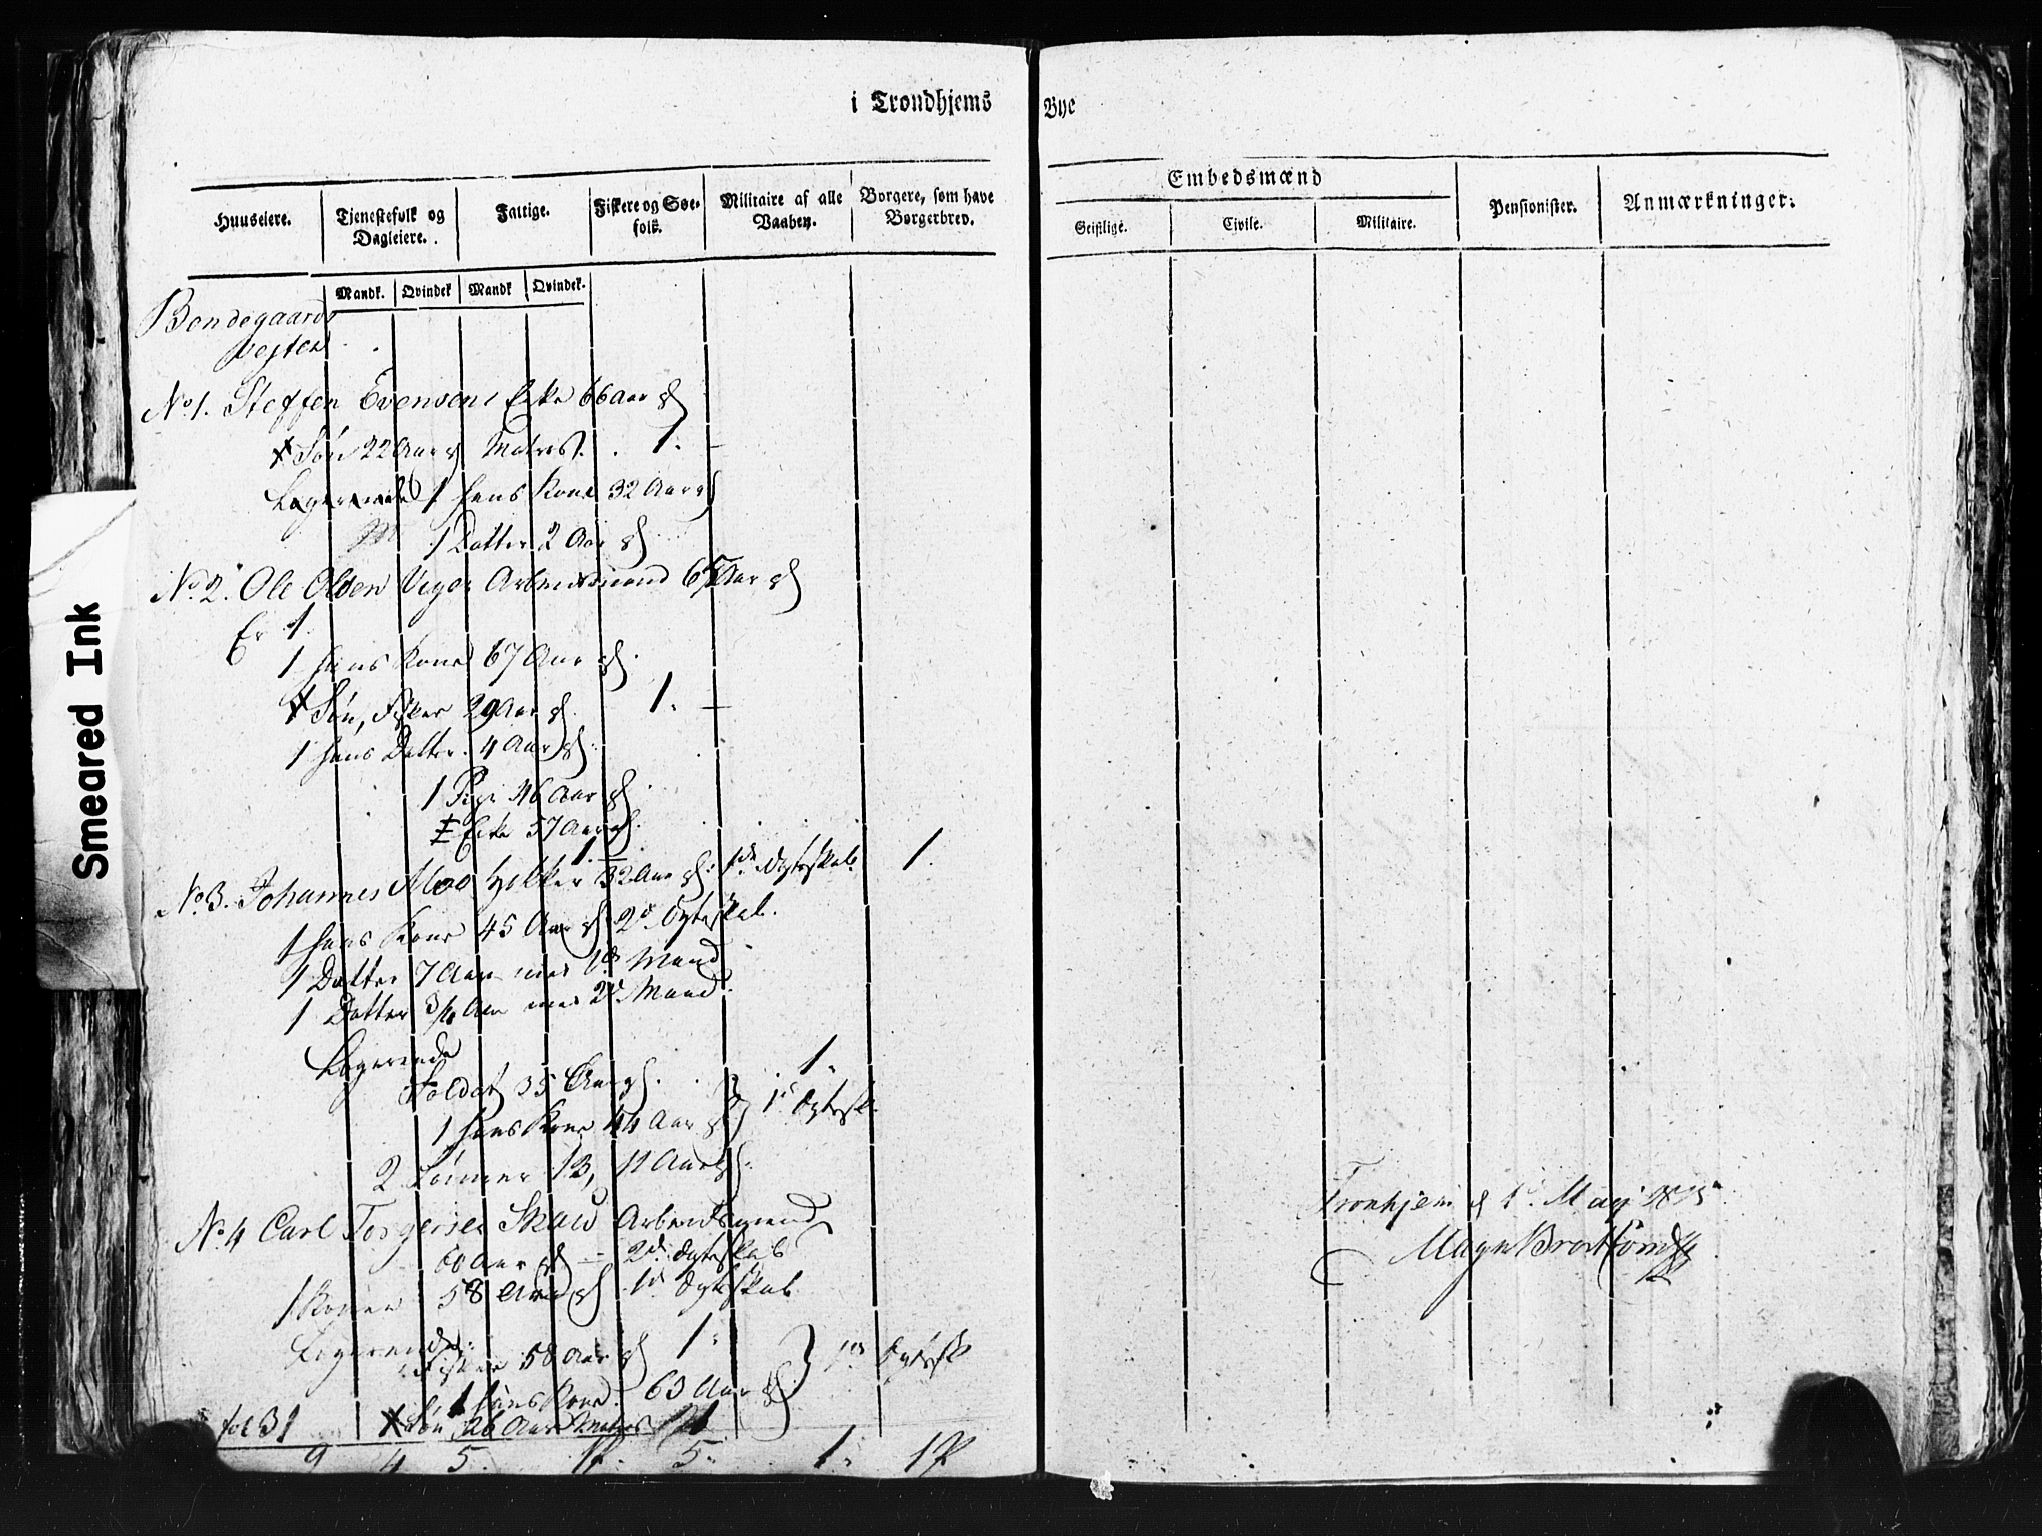 i Trondhjems Bye
Huuseiere. Tjenestefolk og Dagleiere. Fattige. Fiskere og Søefolk. Militaire af alle Vaaben. Borgere, som have Borgerbrev.
Mandk. Qvindek Mandk Qvindek.
Embedsmænd Pensionister. Anmærkninger.
Geistlige. Civile. Militaire.
Bondegaards
No 1. Steffen Evensens Enke 66 Aar
Søn 22 Aar Matros. 1.
Logerende 1 hans Kone 32 Aar
1 Datter 2 Aar
No 2. Ole Olsen Arbeidsmand Aar
Er 1
1 hans Kone 67 Aar
Søn, Fisker 29 Aar 1.
1 hans Datter 4 Aar
1 Pige 46 Aar
Enke 57 Aar
1
No 3. Johannes Moe Høker 32 Aar 1de Ægteskab 1.
1 hans Kone 45 Aar 2d Ægteskab.
1 Datter 7 Aar med 1ste Mand
1 Datter Aar med 2d Mand.
Logerende
Soldat 35 Aar 1.
1 hans Kone 44 Aar 1s Ægtesk.
2 Sønner 13, 11 Aar
No 4 Carl Torgersen Skaw Arbeidsmand
60 Aar 2d Ægteskab
1 Kone 58 Aar 1d Ægteskab
Logerende:
Fisker 58 Aar 1. Ægtesk
1 hans Kone 63 Aar
Søn 26 Aar Matros 1
fol 31
9 4 5. 5. 1.
Tronhjem d 1 May
Smeared Ink